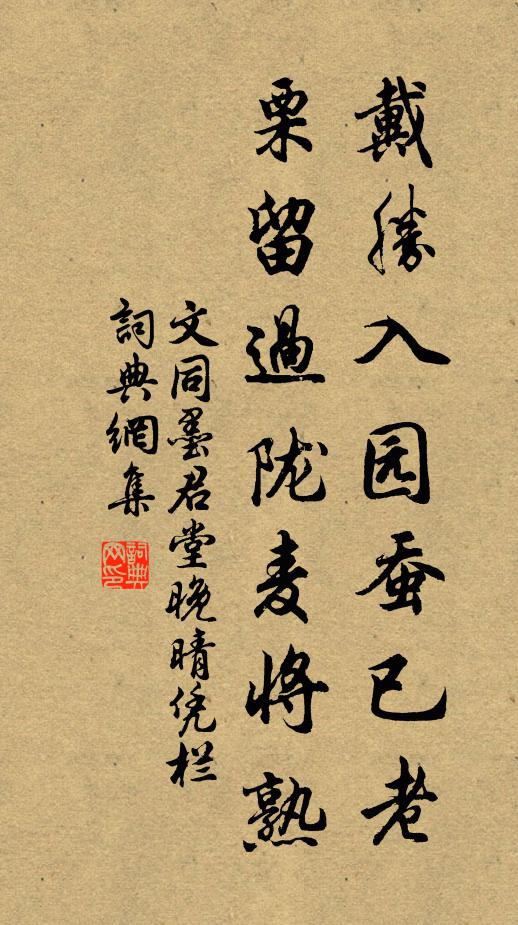 戴勝入园蚕已老
栗留過陇麦将熟
文同墨君堂晚晴凭栏
詞典網集